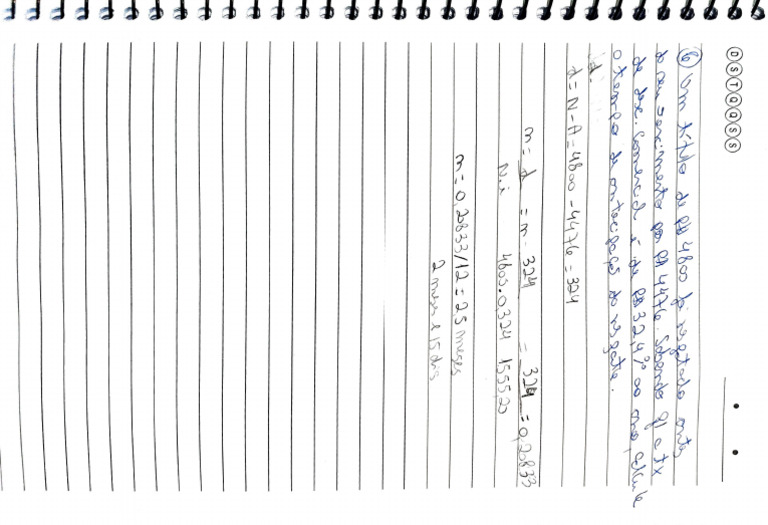 D S T Q Q S S
6 Um título de R$ 4800 foi resgatado antes
do vencimento por R$ 4476. Sabendo q a tx
de desc. comercial é de 32,4% ao ano, calcule
o tempo de antecipação do resgate.
d:
d = N - A = 4800 - 4476 = 324
n = d = n = 324 = 324 = 0,20833
N.i 4800.0,324 1555,20
n = 0,20833/12 = 2,5 meses
2 meses e 15 dias